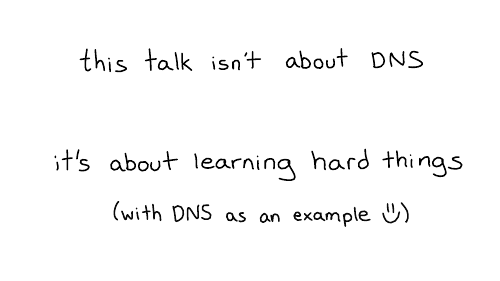 this talk isn't about DNS
it's about learning hard things
(with DNS as an example ☺)